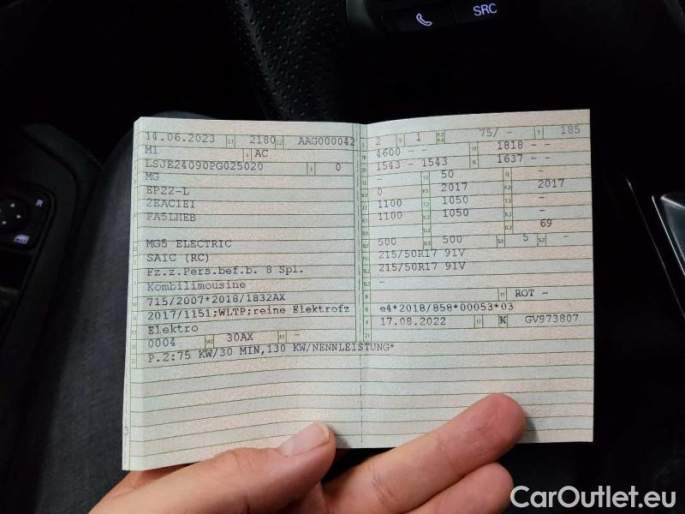 SRC
14.06.2023 2180 AAG000042
M1 AC
LSJE24090PG025020 0
MG
EP22-L
2EAC1E1
FA5LHEB
MG5 ELECTRIC
SAIC (RC)
Fz.z.Pers.bef.b. 8 Spl.
Kombilimousine
715/2007*2018/1832AX
2017/1151;WLTP;reine Elektrofz
Elektro
0004 30AX -
P.2:75 KW/30 MIN,130 KW/NENNLEISTUNG*
2 1 75/ - 185
4600 - - 1818 - -
1543 - 1543 1637 - -
- 50 -
0 2017 2017
1100 1050 -
1100 1050 -
- - 69
500 500 5 -
215/50R17 91V
215/50R17 91V
-
- ROT -
e4*2018/858*00053*03
17.08.2022 K GV973807
CarOutlet.eu